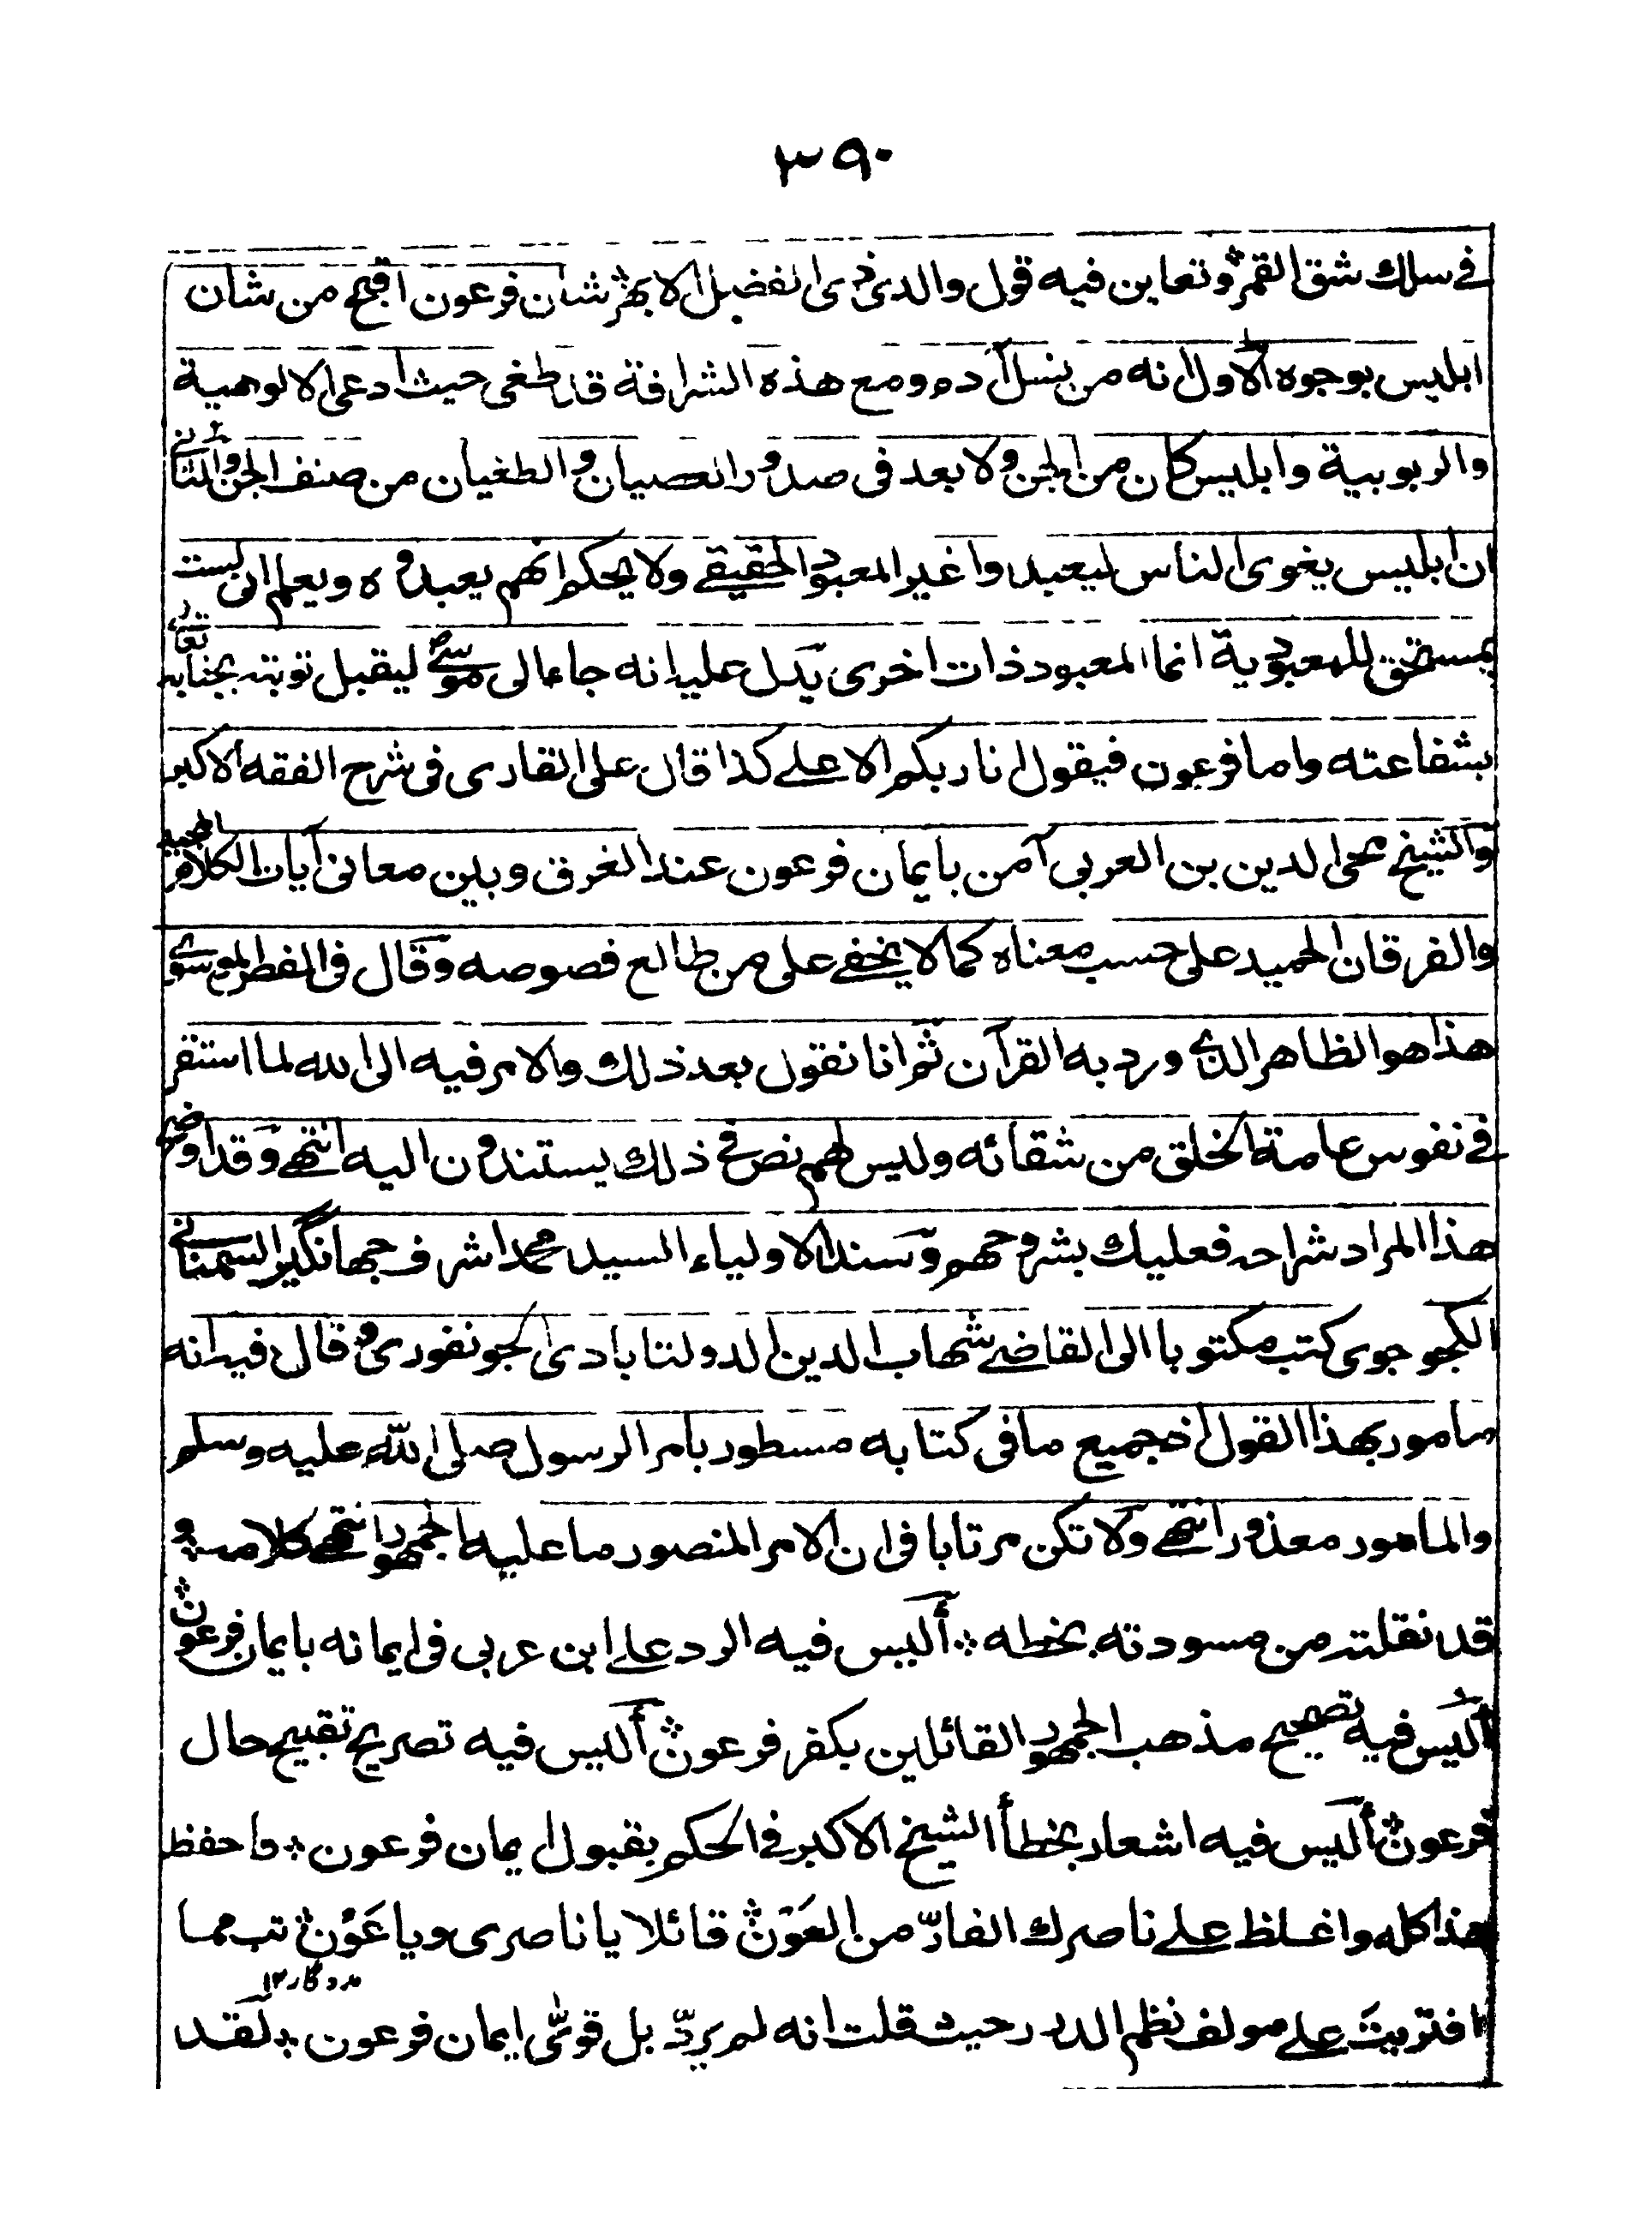 ٣٩٠
في سلك شق القمر ؞ وتعاين فيه قول والدى ذى الفضيل الابهر ؞ شان فرعون اقبح من شان
ابليس بوجوه الاول انه من نسل آدم ومع هذه الشرافة قد طغى حيث ادعى الالوهية
والربوبية وابليس كان من الجن ولا بعد في صدور العصيان والطغيان من صنف الجن والثاني
ان ابليس يغوى الناس ليعبدوا غير المعبود الحقيقي ولا يحكم انهم يعبدوه ويعلم انى لست
بمستحق للمعبودية انما المعبود ذات اخرى يدل عليه انه جاء الى موسى ليقبل توبته بجنابه تعالى
بشفاعته واما فرعون فيقول انا ربكم الاعلى كذا قال على القارى في شرح الفقه الاكبر
والشيخ محى الدين بن العربى آمن بايمان فرعون عند الغرق وبين معانى آيات الكلام المجيد
والفرقان الحميد على حسب معناه كما لا يخفى على من طالع فصوصه وقال في الفص الموسوى
هذا هو الظاهر الذى ورد به القرآن ثم انا نقول بعد ذلك والامر فيه الى الله لما استقر
في نفوس عامة الخلق من شقائه وليس لهم نص في ذلك يستندون اليه انتهى وقد اوضح
هذا المراد شراحه فعليك بشروحهم وسند الاولياء السيد محمد اشرف جهانگير السمنانى
الكچوچوى كتب مكتوبا الى القاضى شهاب الدين الدولتابادى الجونفورى ؞ وقال فيه انه
مامور بهذا القول اذ جميع ما في كتابه مسطور بامر الرسول صلى الله عليه وسلم
والمامور معذور انتهى ولا تكن مرتابا في ان الامر المنصور ما عليه الجمهور انتهى كلامه ؞ و
قد نقلته من مسودته بخطه ؞ أليس فيه الرد على ابن عربى في ايمانه بايمان فرعون ؞
أليس فيه تصحيح مذهب الجمهور القائلين بكفر فرعون ؞ أليس فيه تصريح تقبيح حال
فرعون ؞ أليس فيه اشعار بخطأ الشيخ الاكبر في الحكم بقبول ايمان فرعون ؞ فاحفظ
هذا كله واغلظ على ناصرك الفارّ من العَوْن ؞ قائلا يا ناصرى ويا عَوْن ؞ تب مما
مددگار ١٢
افتريتَ على مولف نظم الدرر حيث قلت انه لم يردّ بل قوّى ايمان فرعون ؞ لقد